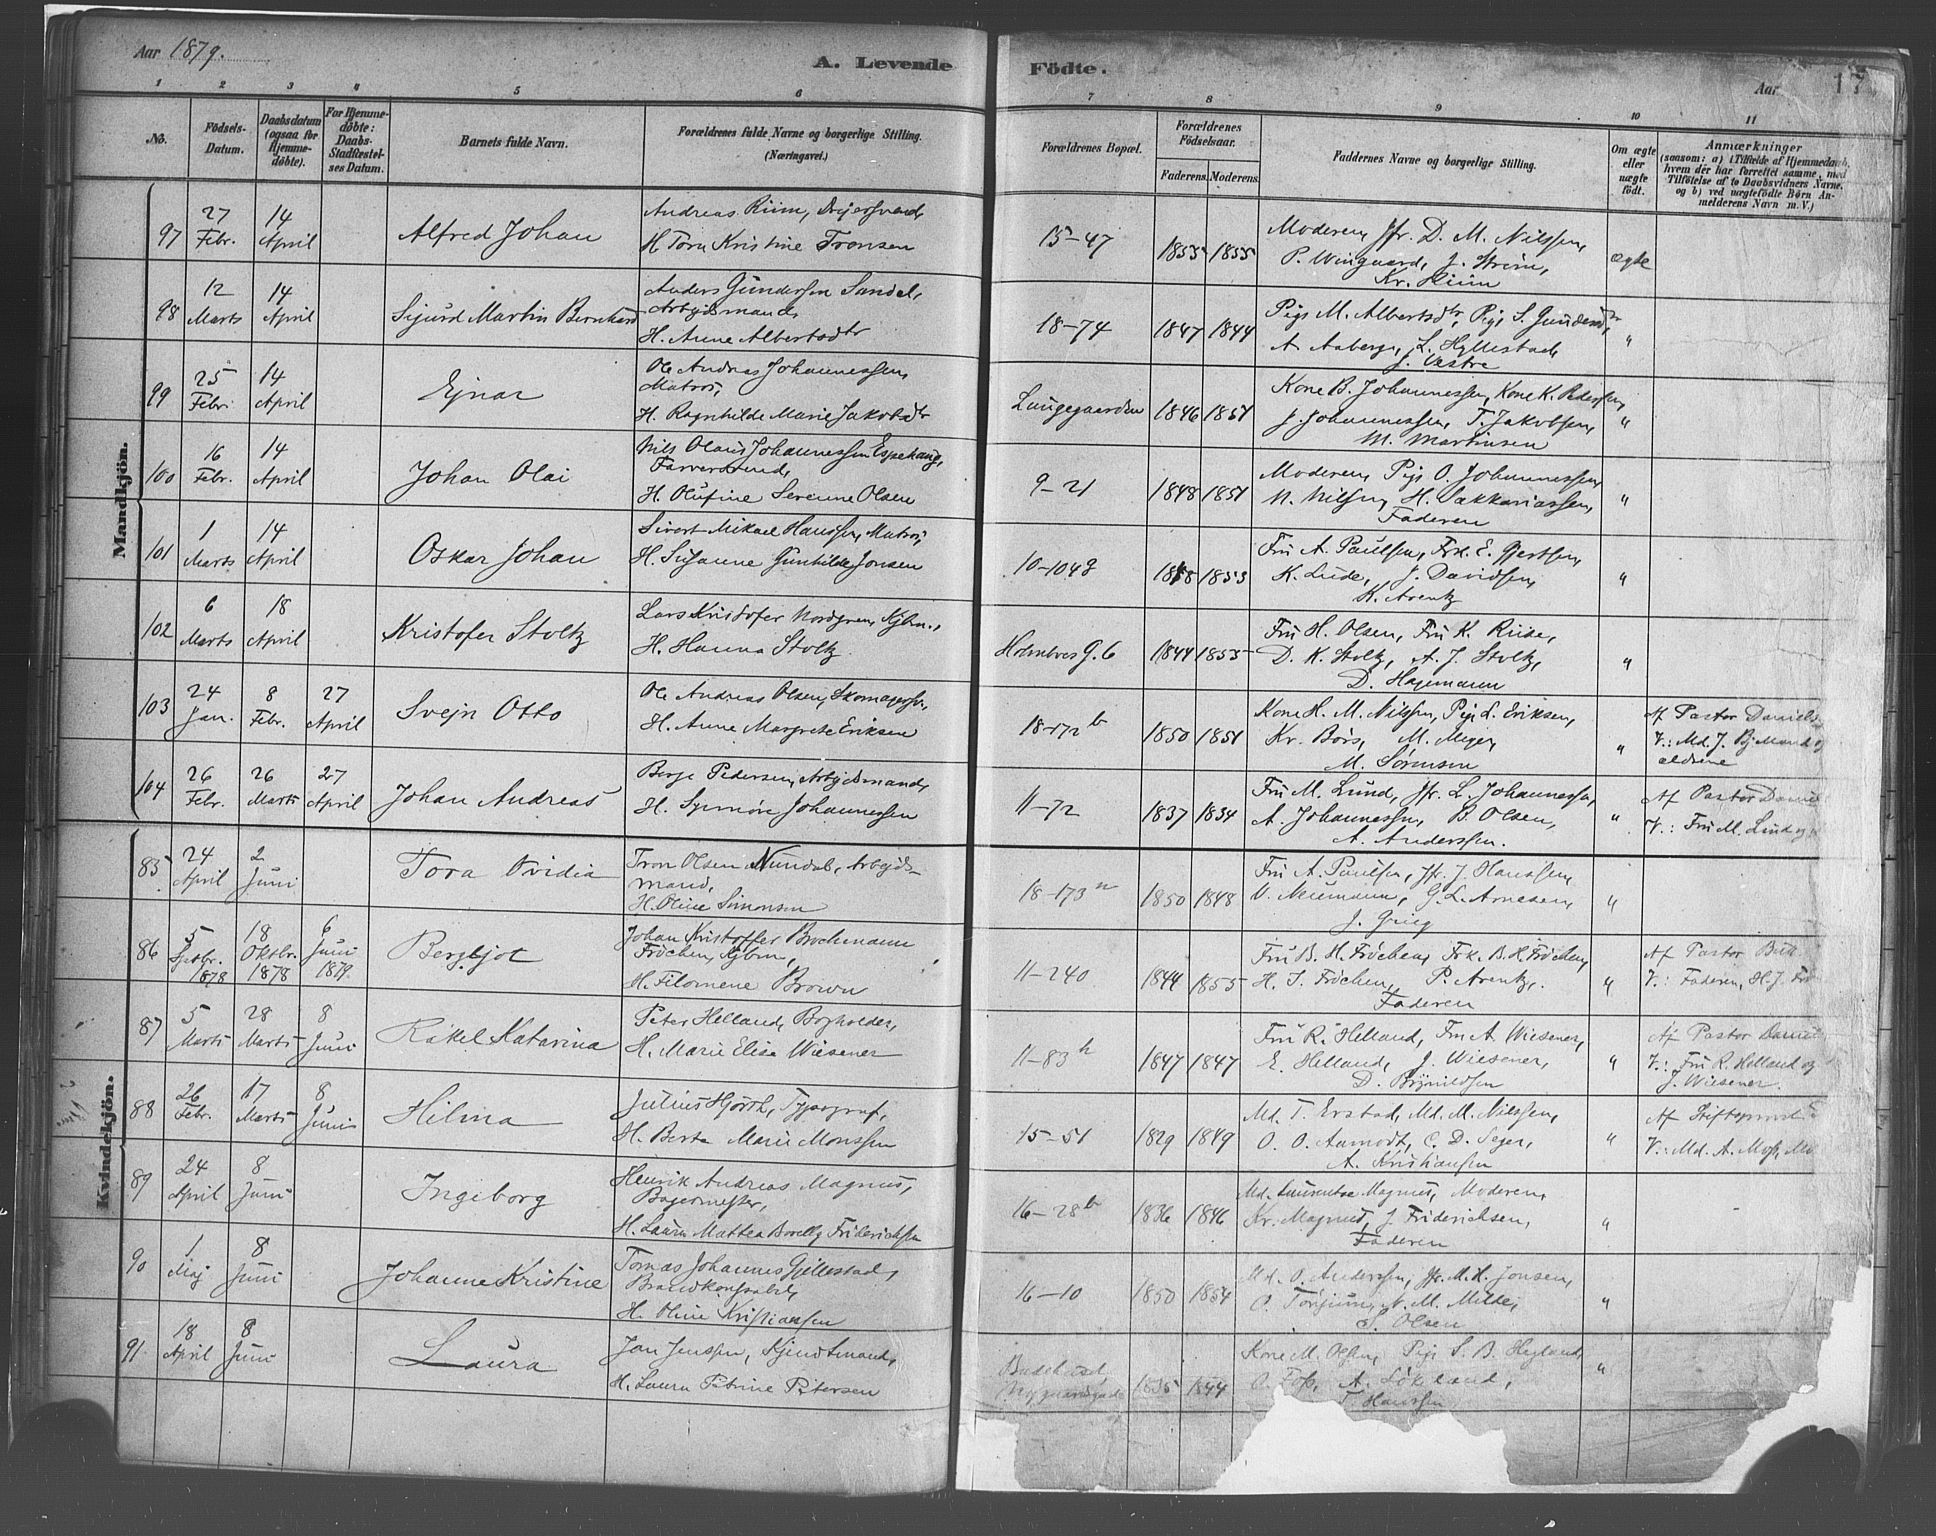 Aar 1879.
A. Levende Födte.
Aar 17
1 2 3 4 5 6 7 8 9 10 11
No.
Födsels-Datum.
Daabsdatum (ogsaa for Hjemme-döbte).
For Hjemme-döbte: Daabs-Stadfæstel-ses Datum.
Barnets fulde Navn.
Forældrenes fulde Navne og borgerlige Stilling. (Næringsvei.)
Forældrenes Bopæl.
Forældrenes Födselsaar.
Faderens. Moderens.
Faddernes Navne og borgerlige Stilling.
Om ægte eller uægte födt.
Anmærkninger
(saasom: a) i Tilfælde af Hjemmedaab, hvem der har forrettet samme, med Tilföielse af to Daabsvidners Navne, og b) ved uægtefödte Börn Anmelderens Navn m. V.)
Mandkjön.
97 27 Febr. 14 April Alfred Johan Andreas Riim,
H. Toru Kristine Tronsen
15-47 1855 1855 Moderen, Jfr. D. M. Nilssen,
P. Wingaard, J. Strim,
Kr. Riim
ægte
98 12 Marts 14 April Sigurd Martin Bernhard Anders Gundersen Sandal,
Arbejdsmand,
H. Anne Albertsdtr
18-74 1847 1844 Pige M. Albertsdtr, Pige S. Gundersdtr
A. Aaberge, L. Hyllestad,
J. Vestre
"
99 25 Febr. 14 April Ejnar Ole Andreas Johannessen,
Matros,
H. Ragnhilde Marie Jakobsdtr
Lungegaarden 1846 1851 Kone B. Johannessen, Kone K. Pedersen,
J. Johannessen, T. Jakobsen,
M. Martinsen
"
100 16 Febr. 14 April Johan Olai Nils Olaus Johannessen Espehaug,
Farversvend,
H. Olufine Serenne Olsen
9-21 1848 1851 Moderen, Pige O. Johannessen,
N. Nilsen, H. Sakkariassen,
Faderen
"
101 1 Marts 14 April Oskar Johan Sivert Mikael Hanssen, Matros,
H. Susanne Gunhilde Jonsen
10-104g 1853 Fru A. Paulsen, Frk. E. Gjertsen,
K. Lude, J. Davidsen,
K. Arentz
"
102 6 Marts 18 April Kristofer Stoltz Lars Kristofer Nordgreen, Kjbm.,
H. Hanna Stoltz
Holmbres G. 6 1844 1855 Fru H. Olsen, Fru K. Riise,
D. K. Stoltz, A. J. Stoltz,
D. Hagemann
"
103 24 Jan. 8 Febr. 27 April Svejn Otto Ole Andreas Olsen, Skomagersv.,
H. Anne Margrete Eriksen
18-172 b 1850 1851 Kone H. M. Nilssen, Pige L. Eriksen,
Kr. Børs, M. Meyer,
M. Sørensen
" Af Pastor Daniels
V.: Md. J. Bj
104 26 Febr. 26 Marts 27 April Johan Andreas Berge Pedersen, Arbejdsmand,
H. Synnøve Johannessen
11-72 1837 1834 Fru M. Lund, Jfr. L. Johannessen,
A. Johannessen, B. Olsen,
A. Anderssen.
" Af Pastor Daniel
V.: Fru M. Lund og
Kvindekjön.
85 24 April 2 Juni Tora Ovidia Tron Olsen Nundal, Arbejds-
mand,
H. Oline Simonsen
18-173 1850 1848 Fru A. Paulsen, Jfr. J. Hanssen,
V. Neumann, G. L. Arnesen,
J. Grieg
"
86 5 Septbr. 1878 18 Oktbr. 1878 6 Juni 1879. Bergljot Johan Kristoffer Brochmann
Fröchen, Kjbm.,
H. Filomene Brown
11-240 1844 1855 Fru B. H. Fröchen, Frk. B. H. Fröchen,
H. J. Fröchen, P. Arentz,
Faderen
" Af Pastor Bull
V.: Faderen, H. J. Frö
87 5 Marts 28 Marts 8 Juni Rakel Katarina Peter Helland, Bogholder,
H. Marie Elisa Wiesener
11-83 h 1847 1847 Fru R. Helland, Fru A. Wiesener,
E. Helland, J. Wiesener,
D. Brynildsen
" Af Pastor Daniel
V.: Fru R. Helland og
J. Wiesener.
88 26 Febr. 17 Marts 8 Juni Hilma Julius Hjorth, Typograf,
H. Berta Marie Monssen
15-51 1829 1849 Md. T. Erstad, Md. M. Nilssen,
O. O. Aamodt, C. D. Seger,
A. Kristiansen
" Af Stiftsprovst
V.: Md. A. Moss, Md
89 24 April 8 Juni Ingeborg Henrik Andreas Magnus,
Bagermester,
H. Laura Mattea Borelly Friderichsen
16-28 b 1836 1846 Md. Laurentse Magnus, Moderen,
Kr. Magnus, J. Friderichsen,
Faderen
"
90 1 Maj 8 Juni Johanne Kristine Tomas Johannes Gjellestad,
Brandkonstabel,
H. Oline Kristianssen
16-10 1850 1854 Md. O. Anderssen, Jfr. M. H. Jonsen,
O. Torjusen, N. M. Milde,
S. Olsen
"
91 18 April 8 Juni Laura Jan Jenssen, Kjendtmand,
H. Laura Petrine Petersen
Nygaardsgade 1835 1844 Kone M. Olsen, Pige S. B. Heyland,
O. Foss, A. Lökeland,
T. Hanssen
"